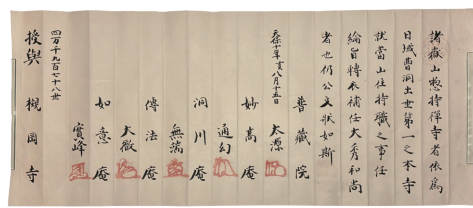 諸嶽山惣持禅寺者依為
日域曹洞出世第一之本寺
就當山住持職之事任
綸旨轉衣補任大秀和尚
者也仍公文状如斯
天保十年亥八月十五日
普藏院
太源
妙高庵
通幻
洞川庵
無端
傳法庵
大徹
如意庵
實峰
四万千九百七十八世
授與 槻岡寺